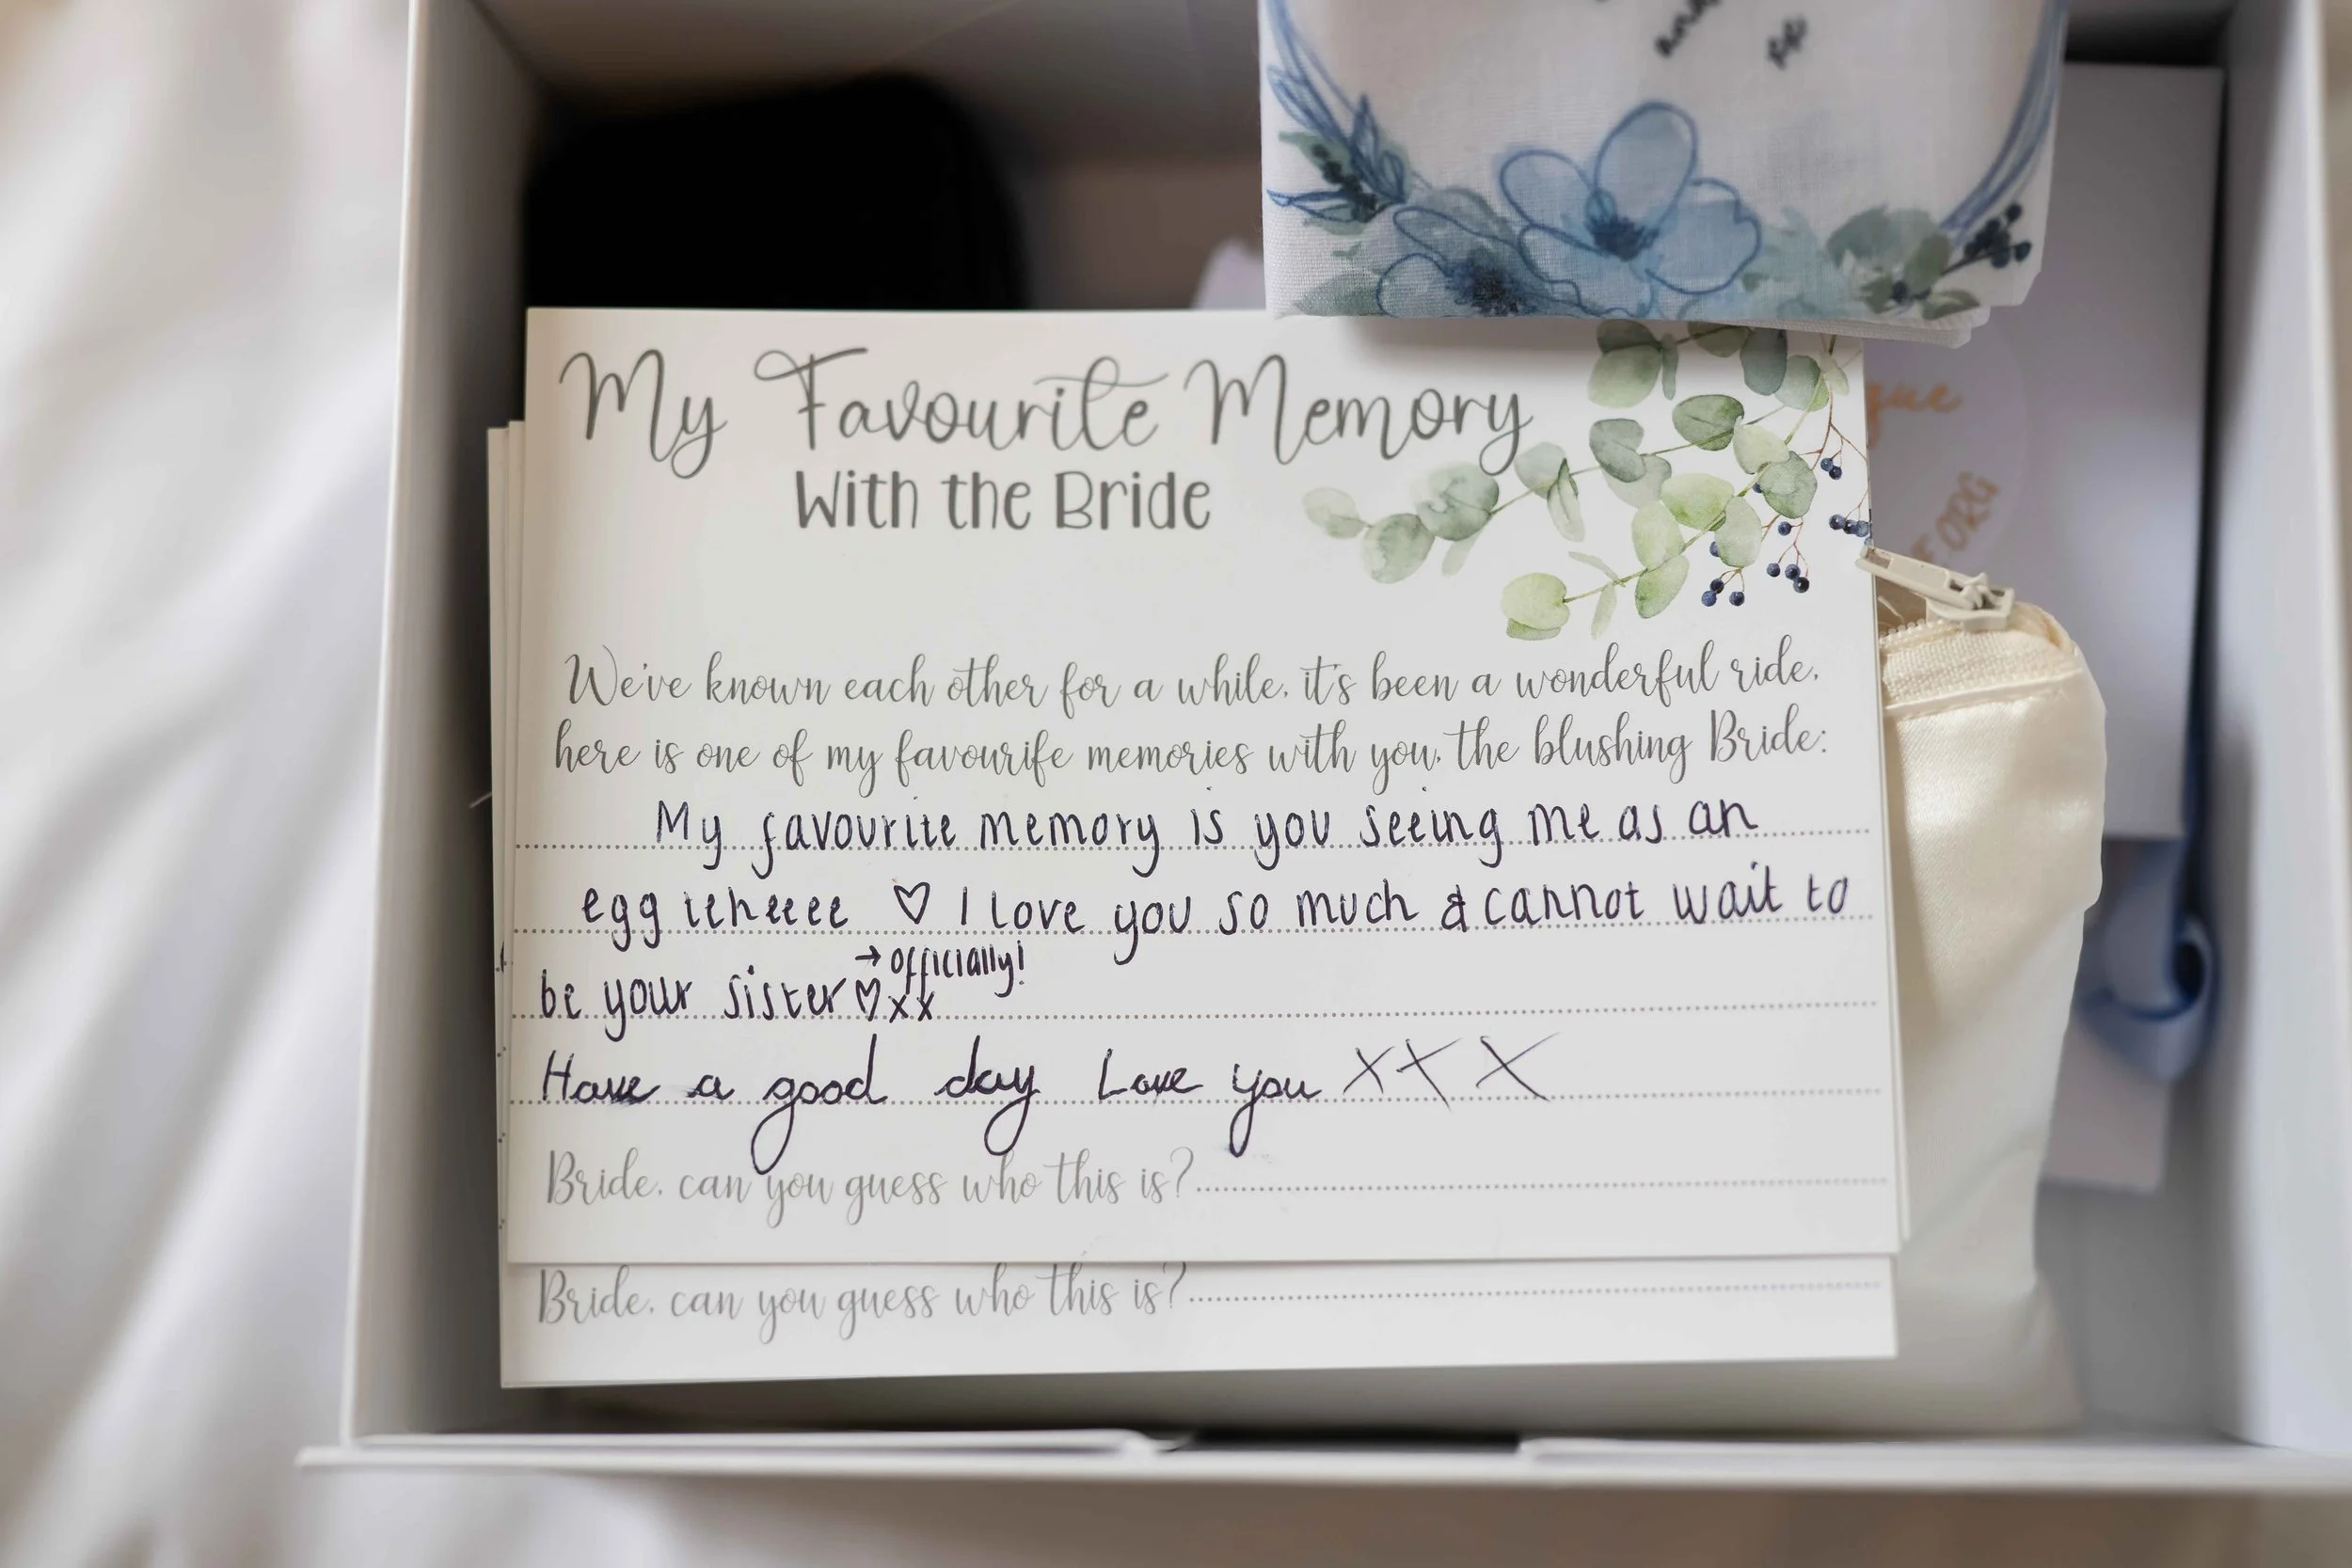 My Favourite Memory
With the Bride
We've known each other for a while, it's been a wonderful ride,
here is one of my favourife memories with you, the blushing Bride:
My favourite memory is you seeing me as an
egg ♡ I love you so much & cannot wait to
→ Officially!
be your sister ♡ xx
Have a good day Love you XXX
Bride, can you guess who this is?
Bride, can you guess who this is?